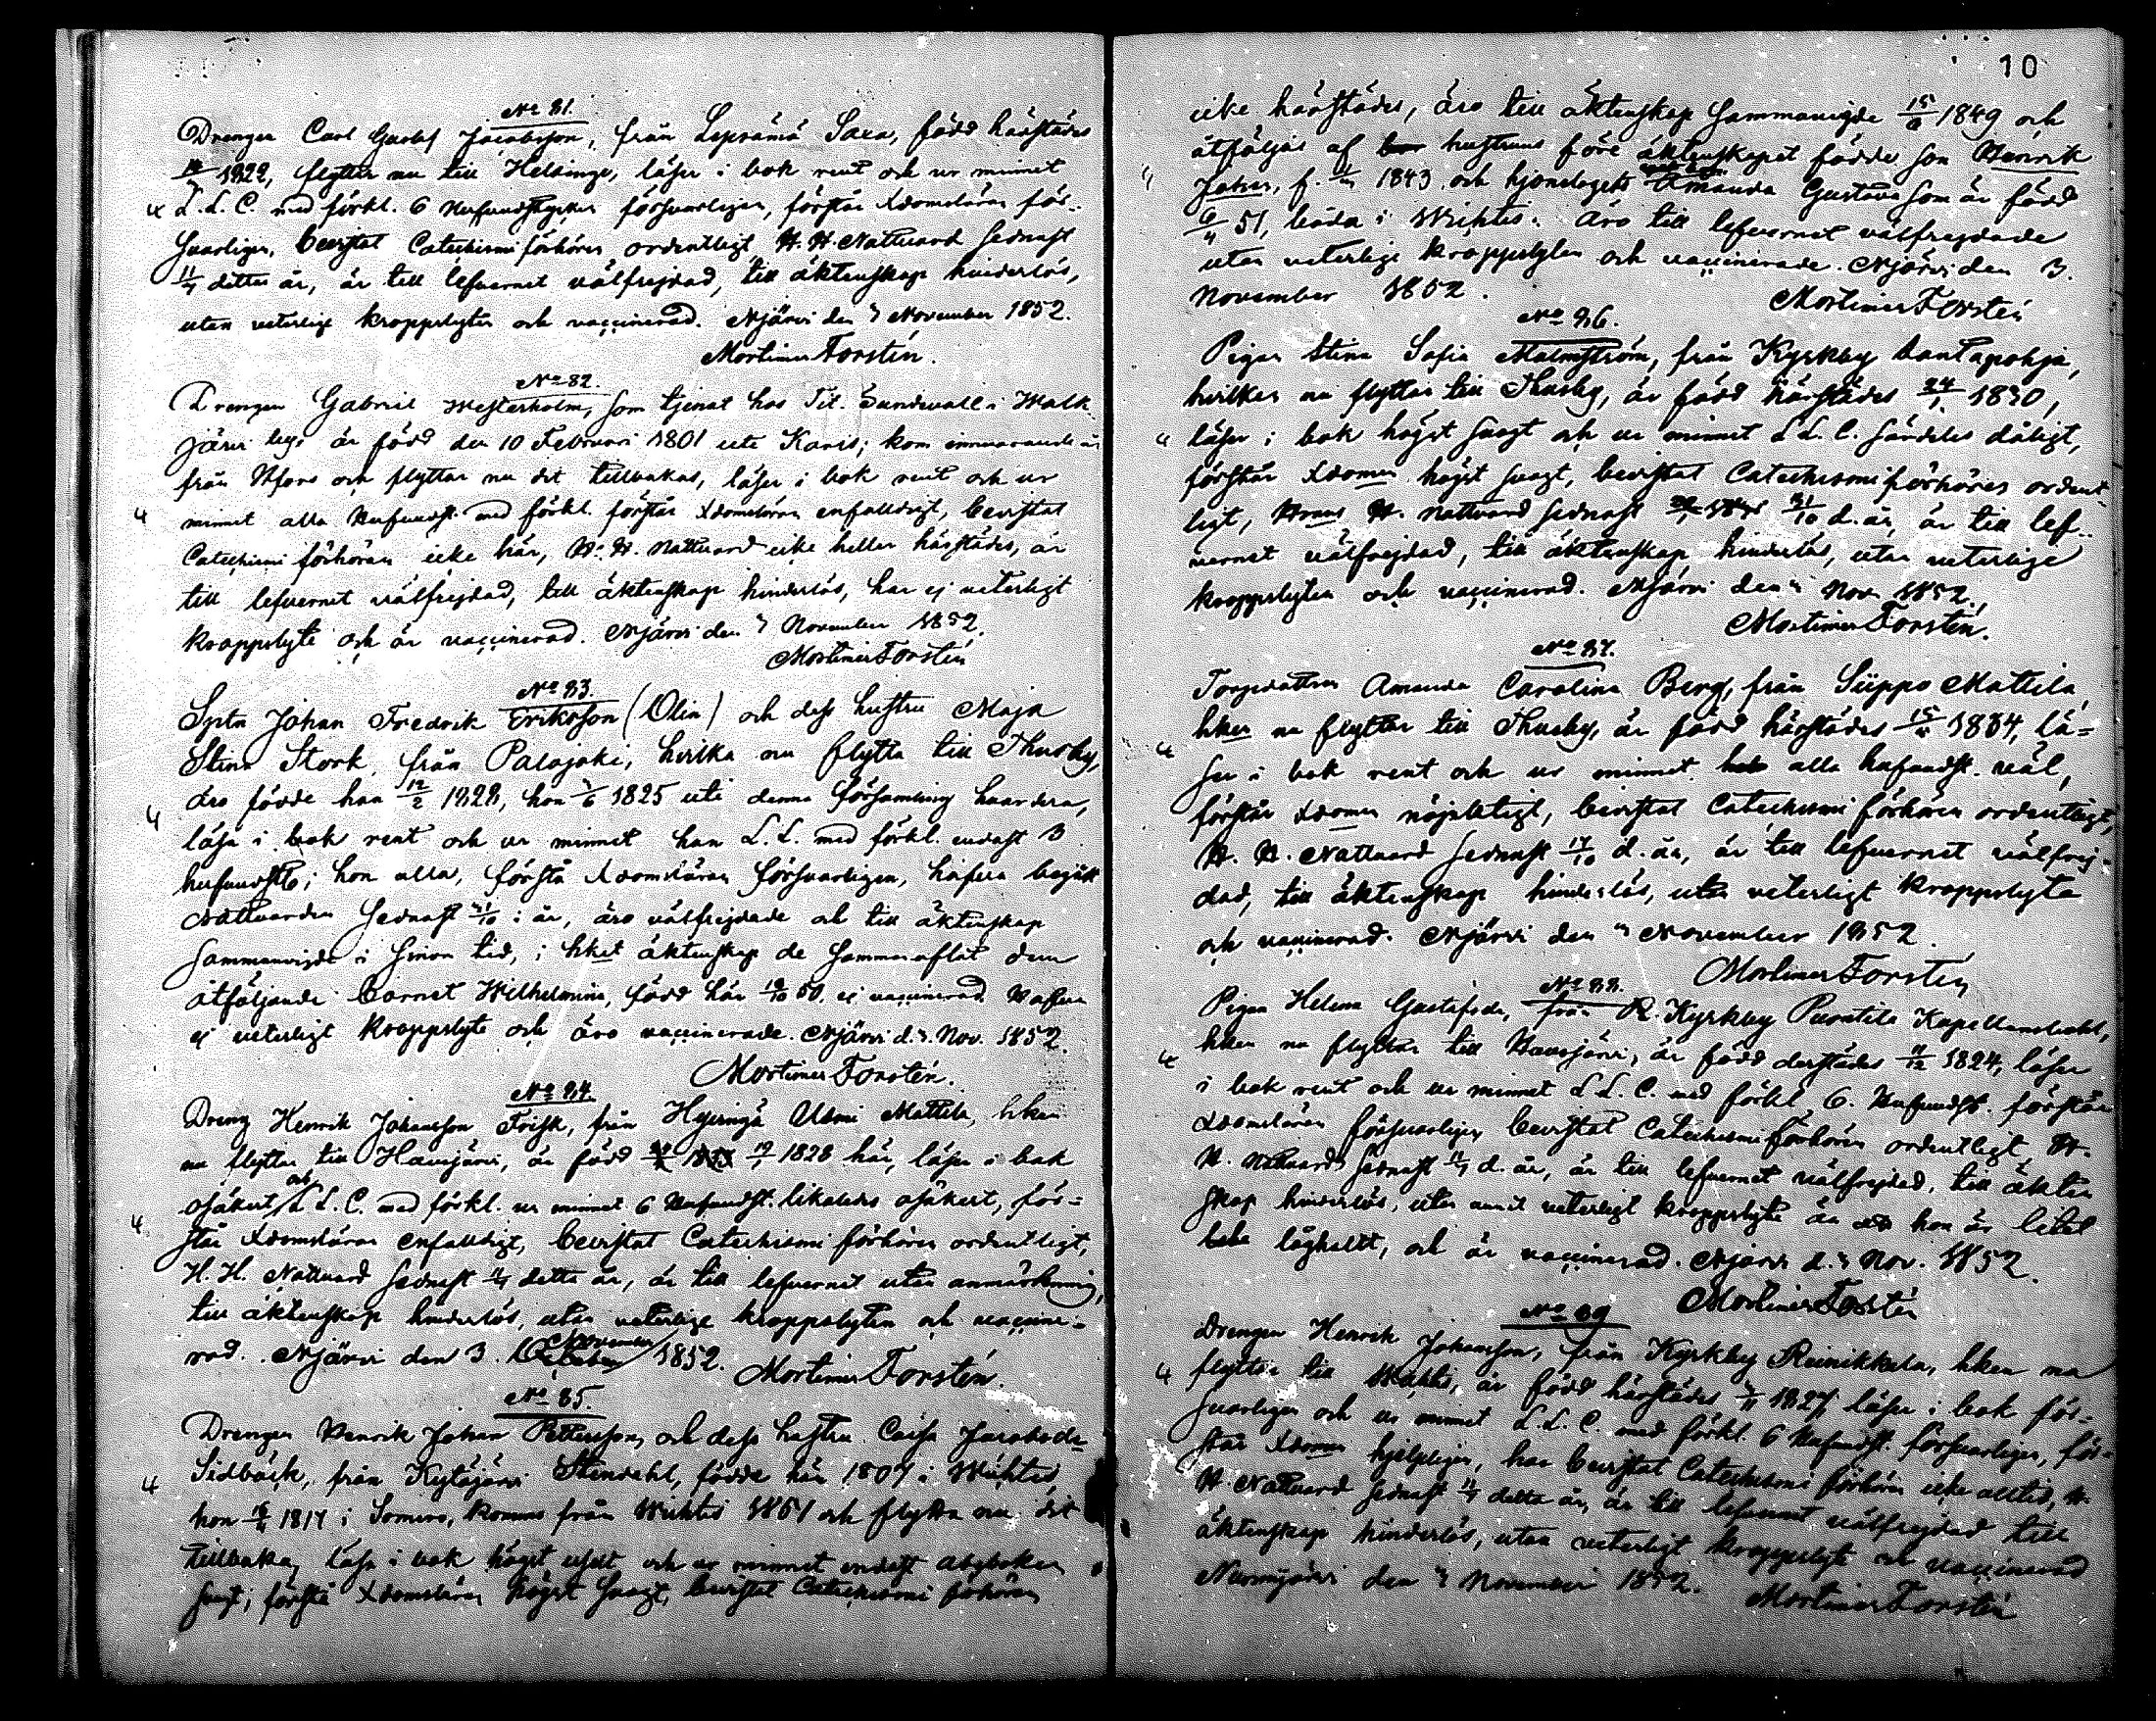 No 81.
Drengen Carl Gustaf Jacobsson, från Lepsämä Saxa, född härstädes
1822, flyttar nu till Helsinge, läser i bok rent och ur minnet
4 L. L. C. med förkl. 6 Hufvudstycken försvarligen, förstår Xdomsläran för-
svarligen, bevistat Catechismi förhören ordentligt, H. H. Nattvard sednast
11/4 detta år, är till lefvernet välfrejdad, till äktenskap hinderlös,
utan veterlige kroppslyten och vaccinerad. Njärvi den 3 November 1852.
Mortimer Forstén.
No 82.
Drengen Gabriel Westerholm, som tjenat hos Tit. Sundvall i Walk
järvi by, är född den 10 Februari 1801 uti Karis; kom innevarande år
från Hfors och flyttar nu dit tillbakas, läser i bok rent och ur
4 minnet alla Hufvudst. med förkl. förstår Xdomsläran enfalldigt, bevistat
Catechismi förhören icke här, H. H. Nattvard icke heller härstädes, är
till lefvernet välfrejdad, till äktenskap hinderlös, har ej veterligt
kroppslyte och är vaccinerad. Njärvi den 3 November 1852.
Mortimer Forstén
No 83.
Sytn Johan Fredrik Eriksson (Olin) och dess hustru Maja
Stina Stork, från Palojoki, hvilka nu flytta till Thusby,
äro födde han 12/2 1828, hon 3/6 1825 uti denna församling hvardera,
4 läsa i bok rent och ur minnet han L. L. med förkl. endast 3
hufvudst; hon alla, förstå Xdomsläran försvarligen, hafva begått
Nattvarden sednast 31/10 i år, äro välfrejdade och till äktenskap
sammanvigde i sinom tid, i hket äktenskap de sammanaflat dem
åtföljande barnet Wilhelmina, född här 50, ej vaccinerad. Hafva
ej veterligt kroppslyte och äro vaccinerade. Njärvi d. 3. Nov. 1852.
Mortimer Forstén.
No 84.
Dreng Henrik Johansson Frisk, från Hyvingä Uldmi Mattila, hken
nu flyttar till Hausjärvi, är född 1828 här, läser i bok
osäkert, och L. L. C. med förkl. ur minnet 6 Hufvudst. likaledes osäkert, för-
4 står Xdomsläran enfalldigt, bevistat Catechismi förhören ordentligt,
H. H. Nattvard sednast 11/4 detta år, är till lefvernet utan anmärkning,
till äktenskap hinderlös, utan veterlige kroppslyten och vaccine-
rad. Njärvi den 3. November 1852.
Mortimer Forstén.
No 85.
Drengen Henrik Johan Pettersson, och dess hustru Caisa Jacobsdr
4 Sidbäck, från Kytäjärvi Stendahl, födde han 1807 i Wichtis,
hon 1817 i Somero, komne från Wichtis 1851 och flytta nu dit
tillbaka, läsa i bok högst uselt och ur minnet endast abcboken
svagt, förstå Xdomsläran högst svagt, bevistat Catechismi förhören
10
icke härstädes, äro till äktenskap sammanvigde 1849 och
åtföljas af hustruns före äktenskapet födde son Henrik
4 Johan, f. 1843, och hjonelagets Amanda Gustava som är född
51, båda i Wichtis. Äro till lefvernet välfrejdade
utan veterlige kroppslyten och vaccinerade. Njärvi den 3.
November 1852.
Mortimer Forstén
No 86.
Pigan Stina Sofia Malmström, från Kyrkby Lantapohja,
hvilken nu flyttar till Thusby, är född härstädes 24/1 1830,
4 läser i bok högst svagt och ur minnet L L. C. särdeles dåligt,
förstår Xdomen högst svagt, bevistat Catechismi förhören ordent-
ligt, H. Nattvard sednast 31/10 d. år, är till lef-
vernet välfrejdad, till äktenskap hinderlös, utan veterlige
kroppslyten och vaccinerad. Njärvi den 3 Nov. 1852.
Mortimer Forstén.
No 87.
Torpedottren Amanda Carolina Berg, från Siippo Mattila
hken nu flyttar till Thusby, är född härstädes 1834, lä-
4 ser i bok rent och ur minnet alla hufvudst. väl,
förstår Xdomen nöjaktigt, bevistat Catechismi förhören ordentligt,
H. H. Nattvard sednast 17/10 d. år, är till lefvernet välfrej-
dad, till äktenskap hinderlös, utan veterligt kroppslyte
och vaccinerad. Njärvi den 3 November 1852.
Mortimer Forstén
No 88.
Pigan Helena Gustafsdr, från R. Kyrkby Puontila Kapellansbohl,
4 hken nu flyttar till Hausjärvi, är född derstädes 1824, läser
i bok rent och ur minnet L L. C. med förkl. 6. Hufvudst. förstår
Xdomsläran försvarligen, bevistat Catechismi förhören ordentligt, H.
H. Nattvard sednast 11/4 d. år, är till lefvernet välfrejdad, till äkten
skap hinderlös, utan annat veterligt kroppslyte än hon är litet
låghallt, och är vaccinerad. Njärvi d. 3 Nov. 1852.
Mortimer Forstén
No 89
Drengen Henrik Johansson, från Kyrkby Reinikkala, hken nu
4 flyttar till Wichtis, är född härstädes 1827, läser i bok för-
svarligen och ur minnet L. L. C. med förkl. 6 Hufvudst. försvarligen, för-
står Xdomen hjelpligen, har bevistat Catechismi förhören icke alltid, H.
H. Nattvard sednast 11/4 detta år, är till lefvernet välfrejdad till
äktenskap hinderlös, utan veterligt kroppslyte och vaccinerad
Nurmijärvi den 3 November 1852.
Mortimer Forstén